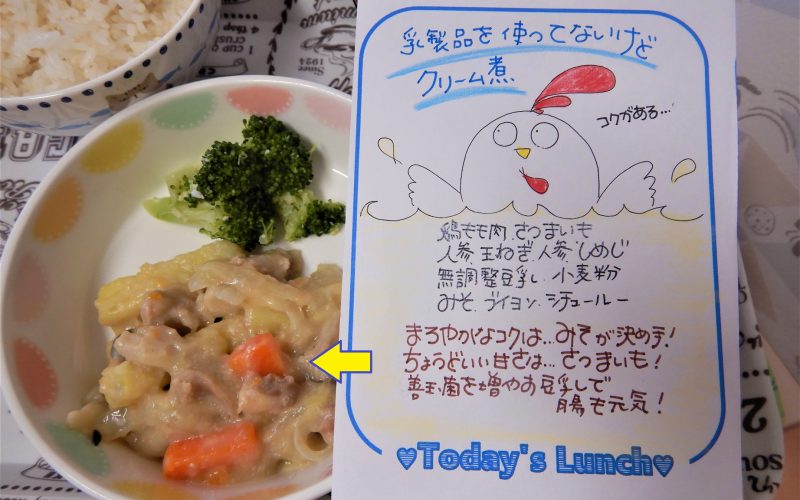 乳製品を使ってないけど
クリーム煮
コクがある…
鶏もも肉、さつまいも
人参、玉ねぎ、人参、しめじ
無調整豆乳、小麦粉
みそ、ブイヨン、シチュールー
まろやかなコクは…みそが決め手！
ちょうどいい甘さは…さつまいも！
善玉菌を増やす豆乳で
腸も元気！
♥Today's Lunch♥
1 CUP
Since
1924